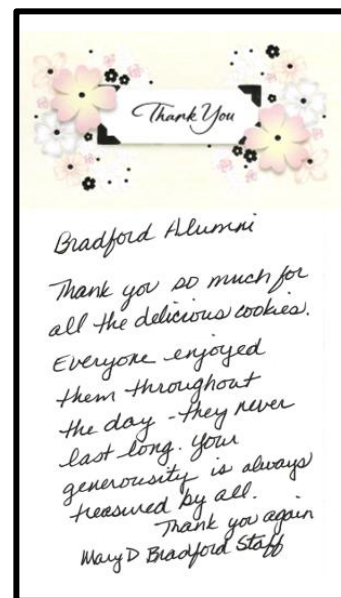 Thank You
Bradford Alumni
Thank you so much for
all the delicious cookies.
Everyone enjoyed
them throughout
the day - they never
last long. Your
generousity is always
treasured by all.
Thank you again
Mary D Bradford Staff